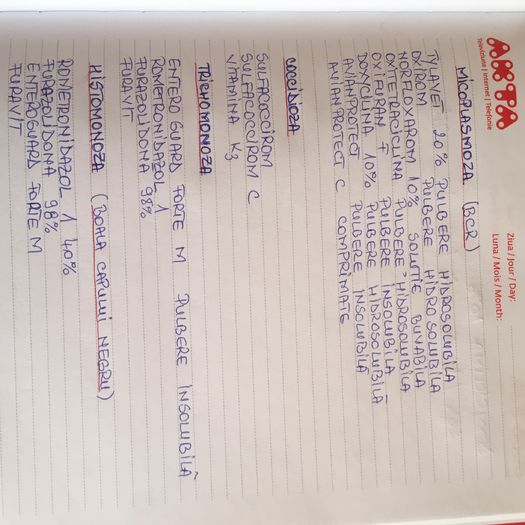 AKTA
Televiziune | Internet | Telefonie
Ziua / Jour / Day:
Luna / Mois / Month:
MICOPLASMOZA (BCR)
TYLAVET 20% PULBERE HIDROSOLUBILA
OXIROM PULBERE HIDROSOLUBILA
NORFLOXAROM 10% SOLUTIE BUVABILA
OXITETRACICLINA PULBERE HIDROSOLUBILA
OXIFURAN F PULBERE INSOLUBILA
DOXYCILINA 10% PULBERE HIDROSOLUBILA
AVIANPROTECT PULBERE INSOLUBILA
AVIANPROTECT C COMPRIMATE
COCCIDIOZA
SULFACOCCIROM
SULFACOCCIROM C
VITAMINA K3
TRICHOMONOZA
ENTERO GUARD FORTE M PULBERE INSOLUBILĂ
ROMETRONIDAZOL 1
FURAZOLIDONA 98%
FURAVIT
HISTOMONOZA (BOALA CAPULUI NEGRU)
ROMETRONIDAZOL 1 40%
FURAZOLIDONA 98%
ENTEROGUARD FORTE M
FURAVIT